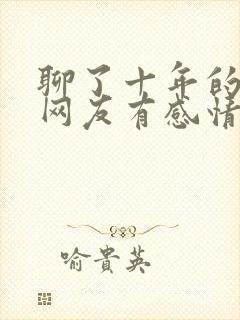 聊了十年的
网友有感情
喻貴英